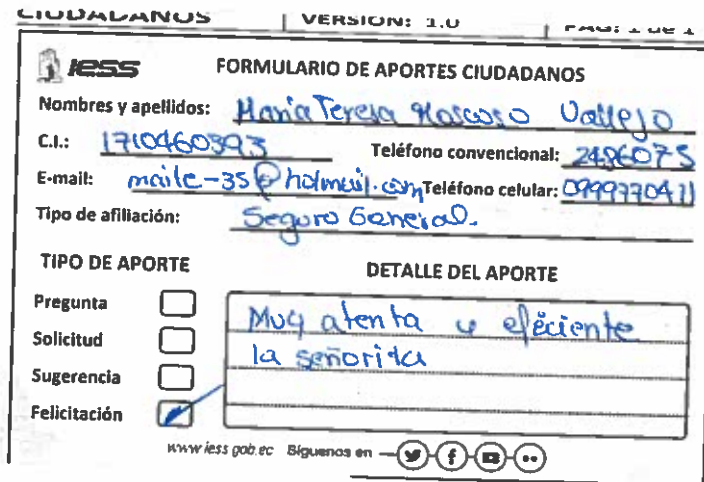 CIUDADANOS VERSION: 1.0 PAG: 1 de 1
iess FORMULARIO DE APORTES CIUDADANOS
Nombres y apellidos: Maria Teresa Moscoso Vallejo
C.I.: 1710460393 Teléfono convencional: 2486075
E-mail: maite-35@hotmail.com Teléfono celular: 0999770411
Tipo de afiliación: Seguro General.
TIPO DE APORTE DETALLE DEL APORTE
Pregunta
Solicitud
Sugerencia
Felicitación
Muy atenta y eficiente
la señorita
www.iess.gob.ec Síguenos en